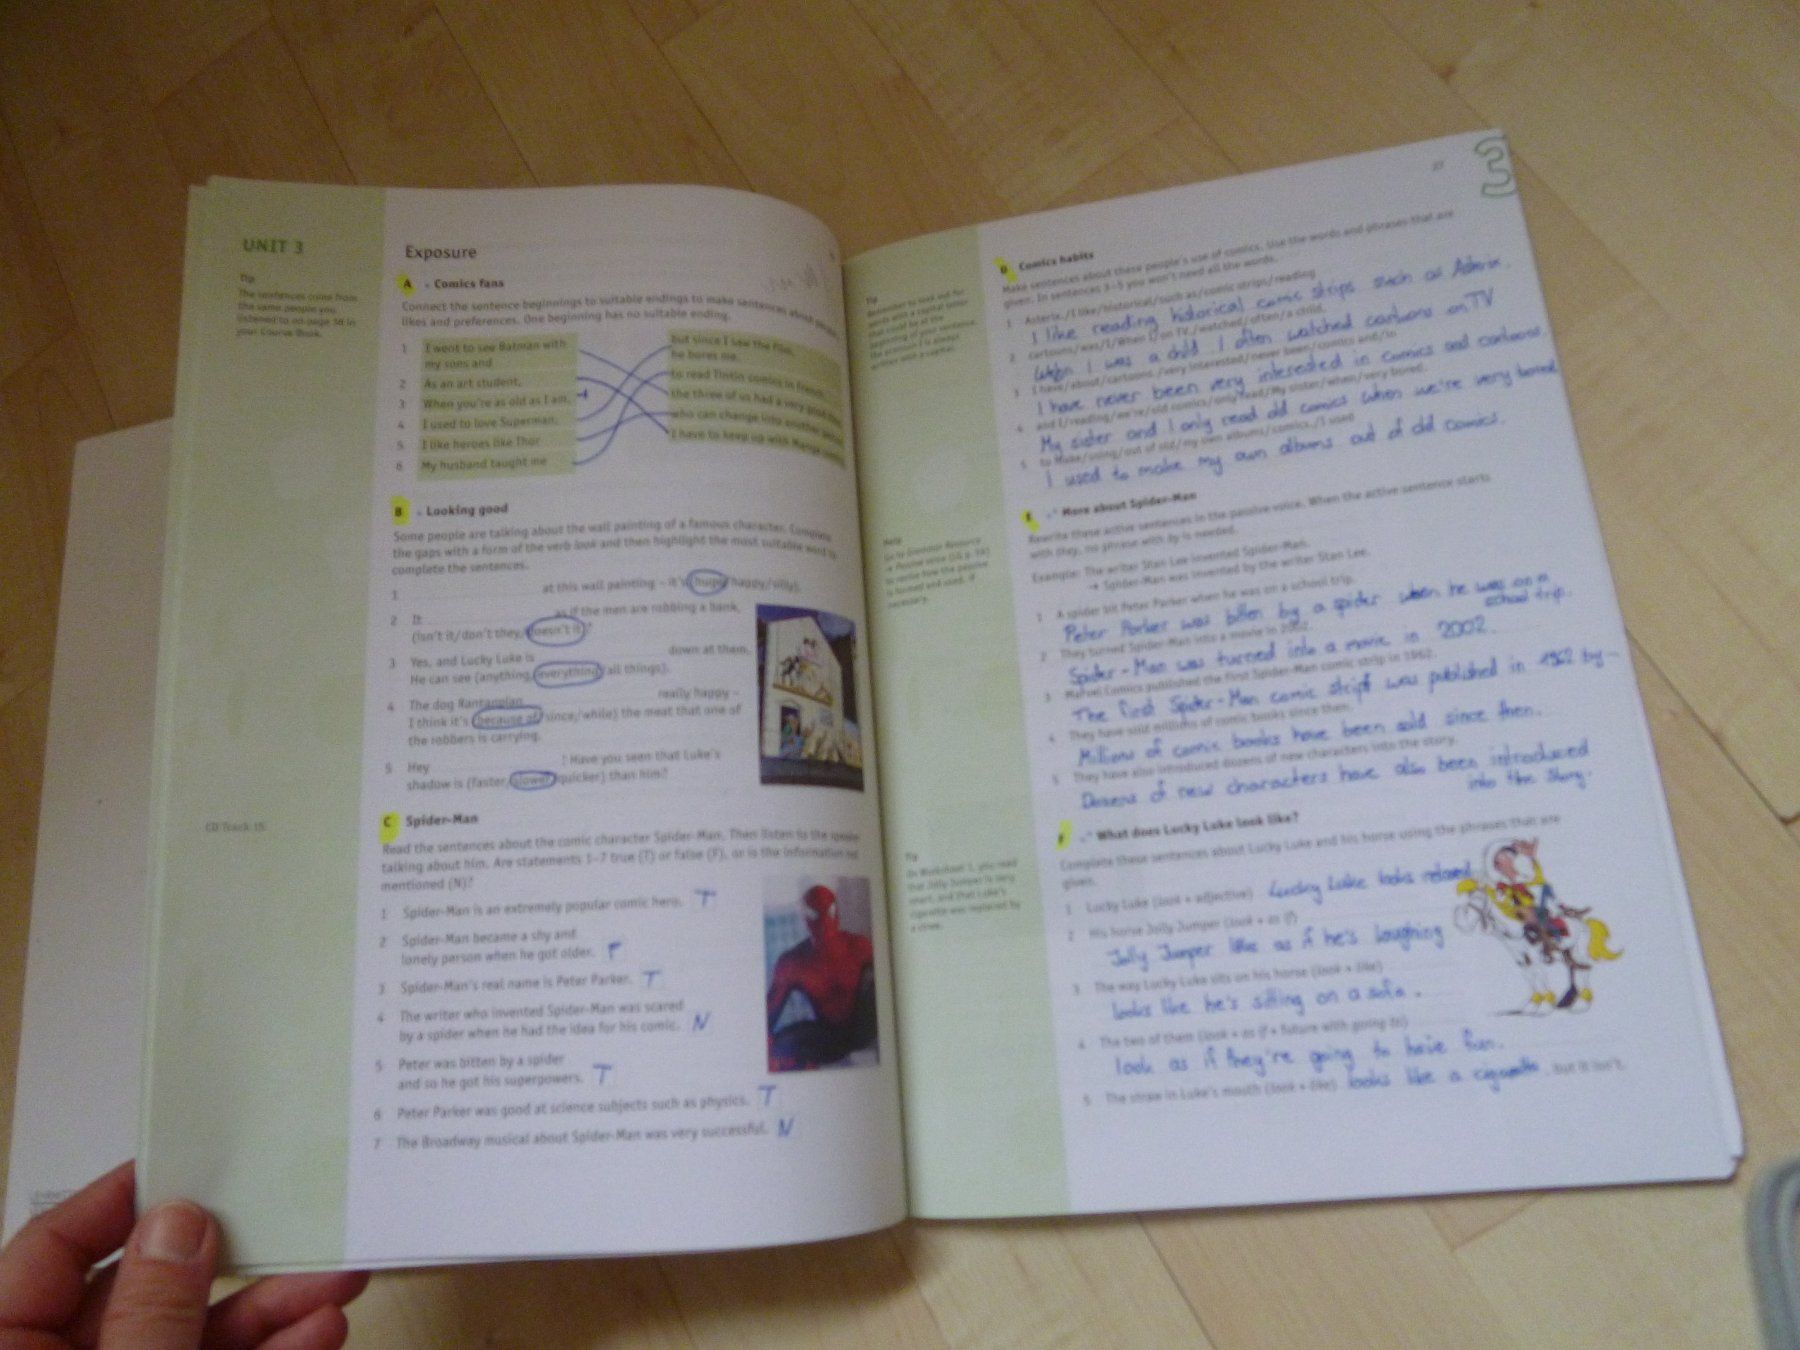 UNIT 3
Tip
The sentences come from
the same people you
listened to on page 38 in
your Course Book.
CD Track 15
Exposure
A Comics fans
Connect the sentence beginnings to suitable endings to make sentences about people's
likes and preferences. One beginning has no suitable ending.
1 I went to see Batman with
my sons and
2 As an art student,
3 When you're as old as I am,
4 I used to love Superman,
5 I like heroes like Thor
6 My husband taught me
but since I saw the film,
he bores me.
to read Tintin comics in French.
the three of us had a very good time.
who can change into another person.
I have to keep up with Manga comics.
B Looking good
Some people are talking about the wall painting of a famous character. Complete
the gaps with a form of the verb look and then highlight the most suitable word to
complete the sentences.
1 at this wall painting – it's (huge/happy/silly).
2 It as if the men are robbing a bank,
(isn't it/don't they/doesn't it)?
3 Yes, and Lucky Luke is down at them.
He can see (anything/everything/all things).
4 The dog Rantanplan really happy –
I think it's (because of/since/while) the meat that one of
the robbers is carrying.
5 Hey ! Have you seen that Luke's
shadow is (faster/slower/quicker) than him?
C Spider-Man
Read the sentences about the comic character Spider-Man. Then listen to the speaker
talking about him. Are statements 1–7 true (T) or false (F), or is the information not
mentioned (N)?
1 Spider-Man is an extremely popular comic hero. T
2 Spider-Man became a shy and
lonely person when he got older. F
3 Spider-Man's real name is Peter Parker. T
4 The writer who invented Spider-Man was scared
by a spider when he had the idea for his comic. N
5 Peter was bitten by a spider
and so he got his superpowers. T
6 Peter Parker was good at science subjects such as physics. T
7 The Broadway musical about Spider-Man was very successful. N
3
Tip
Remember to look out for
words with a capital letter
that could be at the
beginning of your sentence.
the pronoun I is always
written with a capital.
Help
Go to Grammar Resource
to revise how the passive
is formed and used, if
necessary.
Tip
On Worksheet 3, you read
that Jolly Jumper is very
smart, and that Luke's
cigarette was replaced by
a straw.
D Comics habits
Make sentences about these people's use of comics. Use the words and phrases that are
given. In sentences 3–5 you won't need all the words.
1 Asterix./I like/historical/such as/comic strips/reading
I like reading historical comic strips such as Asterix.
2 cartoons/was/I/When I/on TV./watched/often/a child,
When I was a child I often watched cartoons on TV
3 I have/about/cartoons./very interested/never been/comics and/in
I have never been very interested in comics and cartoons.
4 and I/reading/we're/old comics/only read/My sister/when/very bored.
My sister and I only read old comics when we're very bored
5 to make/using/out of old/my own albums/comics./I used
I used to make my own albums out of old comics.
E More about Spider-Man
Rewrite these active sentences in the passive voice. When the active sentence starts
with they, no phrase with by is needed.
Example: The writer Stan Lee invented Spider-Man.
→ Spider-Man was invented by the writer Stan Lee.
1 A spider bit Peter Parker when he was on a school trip.
Peter Parker was bitten by a spider when he was on a
school trip.
2 They turned Spider-Man into a movie in 2002.
Spider-Man was turned into a movie in 2002
3 Marvel Comics published the first Spider-Man comic strip in 1962.
The first Spider-Man comic strip was published in 1962 by
4 They have sold millions of comic books since then.
Millions of comic books have been sold since then.
5 They have also introduced dozens of new characters into the story.
Dozens of new characters have also been introduced
into the story.
F What does Lucky Luke look like?
Complete these sentences about Lucky Luke and his horse using the phrases that are
given.
1 Lucky Luke (look + adjective) Lucky Luke looks relaxed
2 His horse Jolly Jumper (look + as if)
Jolly Jumper like as if he's laughing
3 The way Lucky Luke sits on his horse (look + like)
looks like he's sitting on a sofa.
4 The two of them (look + as if + future with going to)
look as if they're going to have fun.
5 The straw in Luke's mouth (look + like) looks like a cigarette but it isn't.